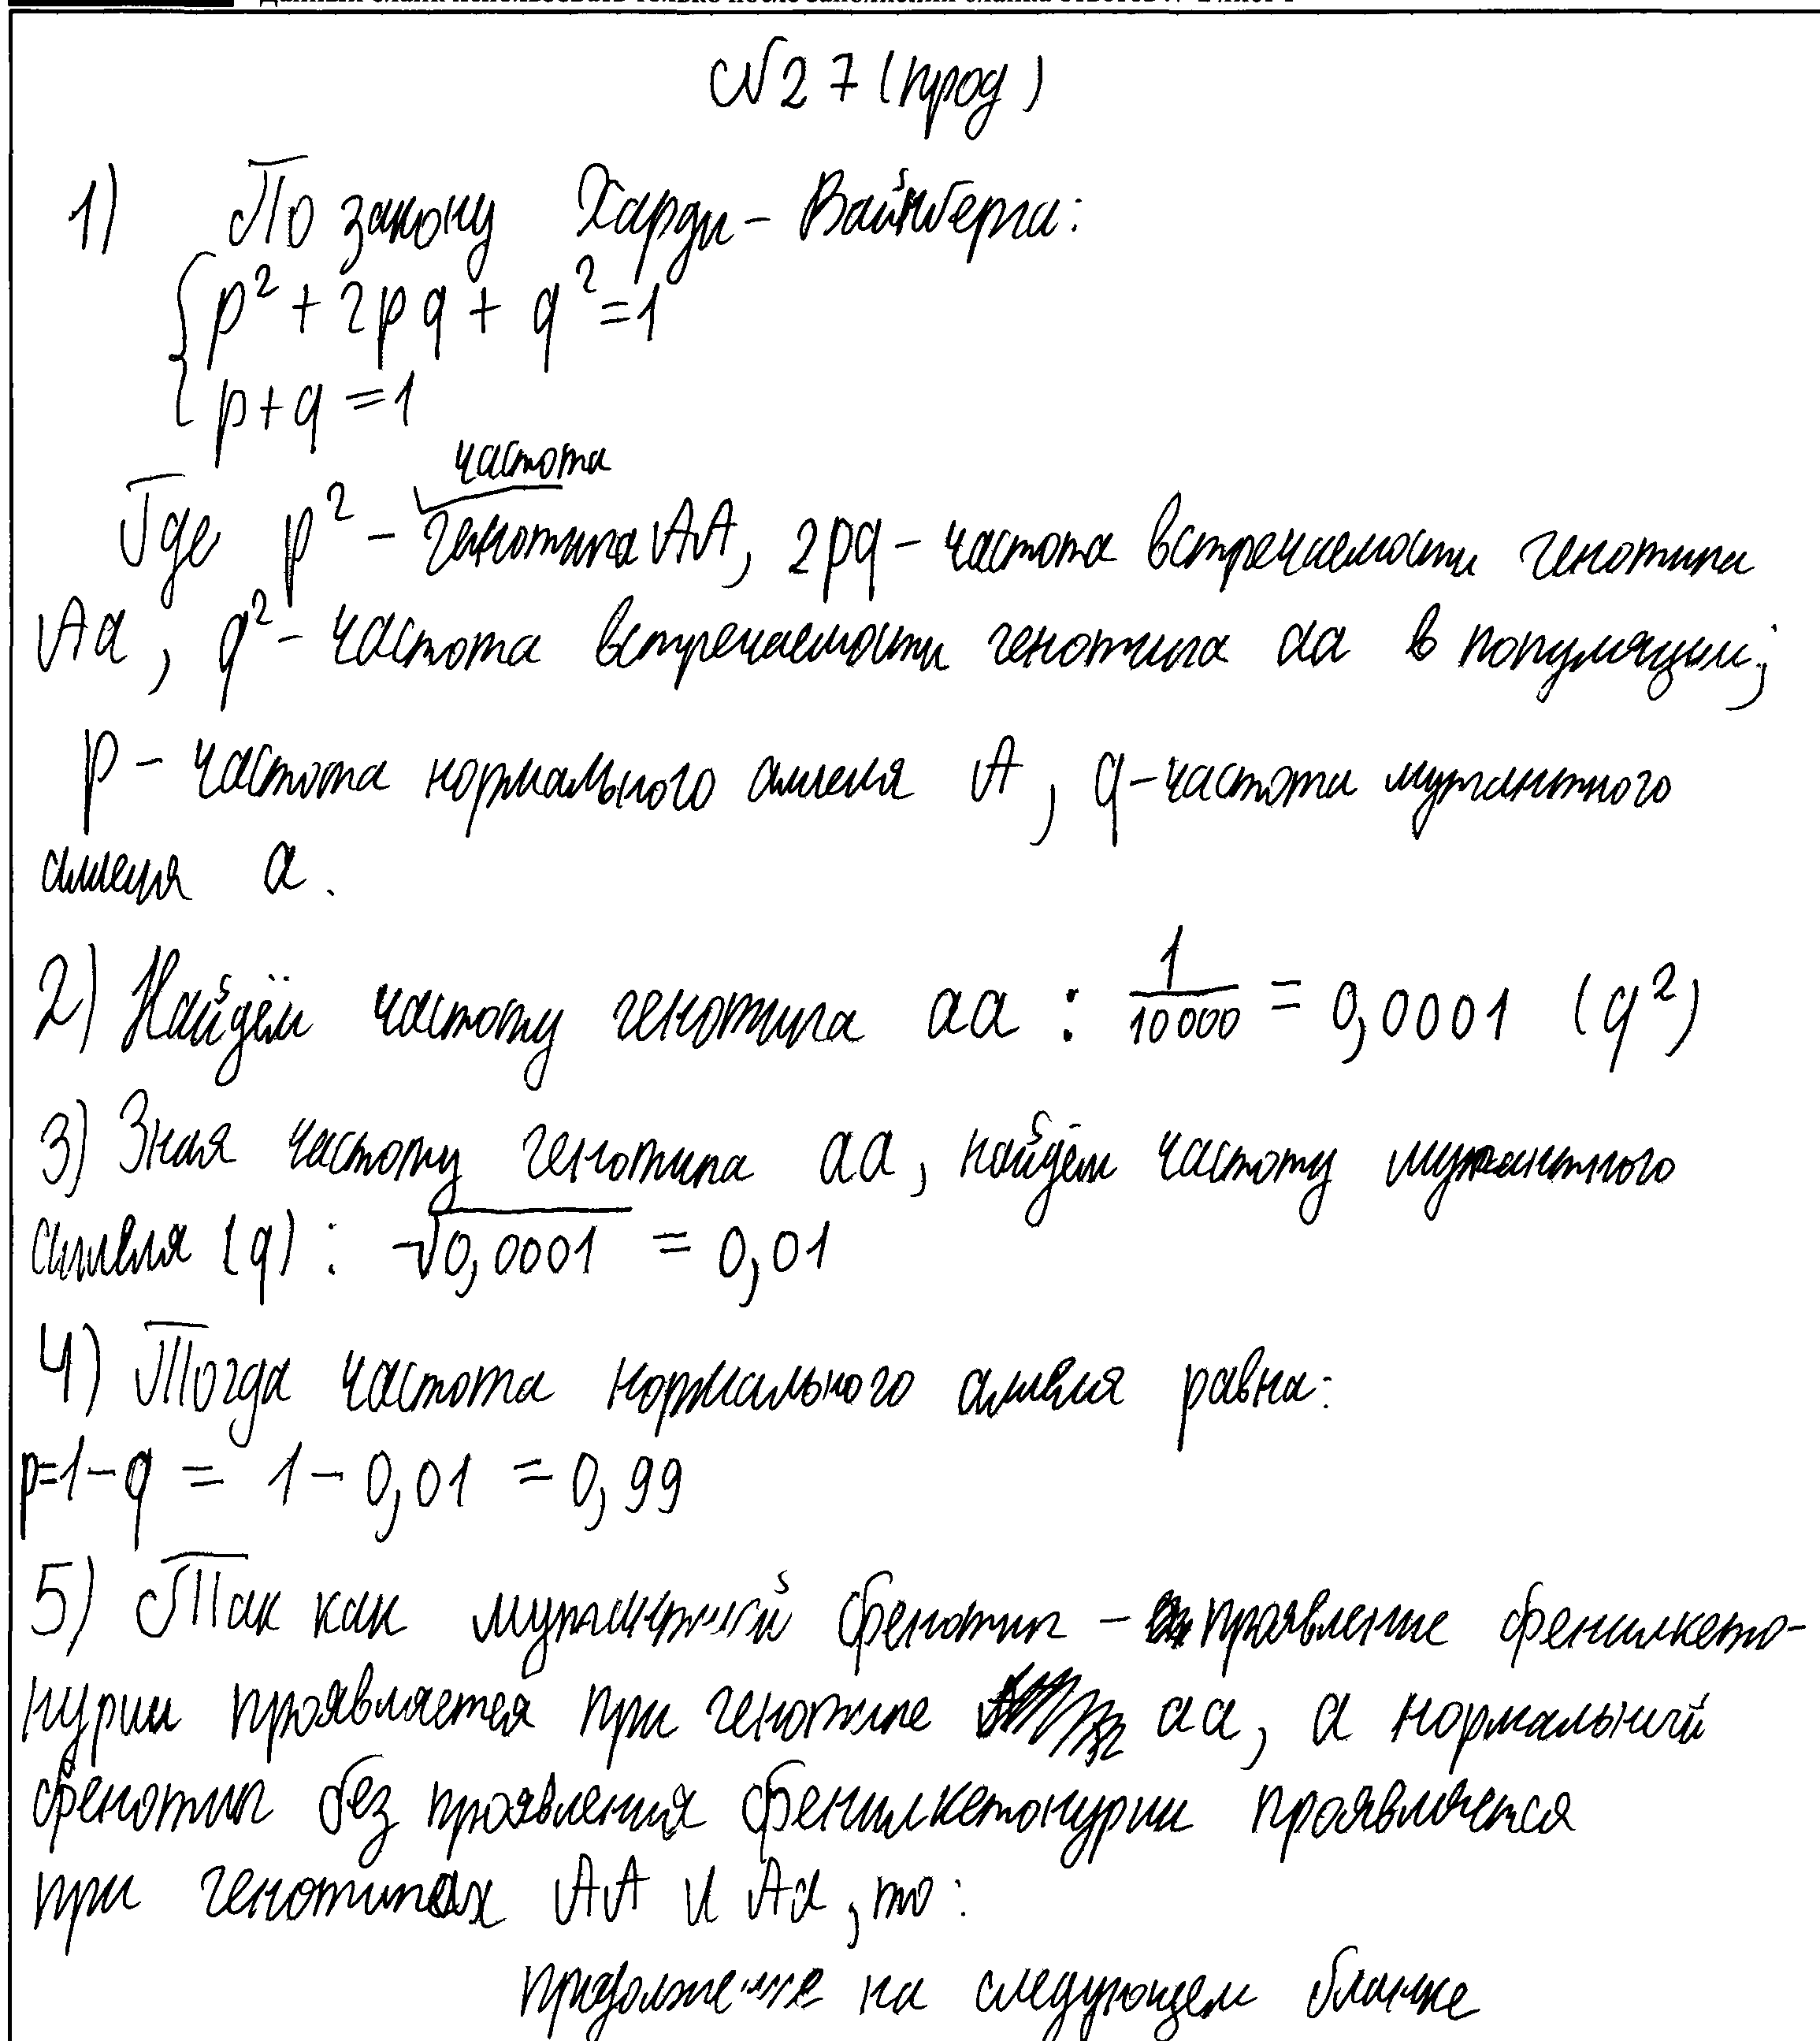 № 27 (прод)
1) По закону Харди - Вайнберга:
p² + 2pq + q² = 1
p + q = 1
частота
Где p² - генотипа AA, 2pq - частота встречаемости генотипа
Aa, q² - частота встречаемости генотипа aa в популяции;
p - частота нормального аллеля A, q - частота мутантного
аллеля a.
2) Найдём частоту генотипа aa : 1/10000 = 0,0001 (q²)
3) Зная частоту генотипа aa, найдём частоту мутантного
аллеля (q) : √0,0001 = 0,01
4) Тогда частота нормального аллеля равна:
p=1-q = 1 - 0,01 = 0,99
5) Так как мутантный фенотип - проявление фенилкето-
нурии проявляется при генотипе aa, а нормальный
фенотип без проявления фенилкетонурии проявляется
при генотипах AA и Aa, то:
продолжение на следующем бланке